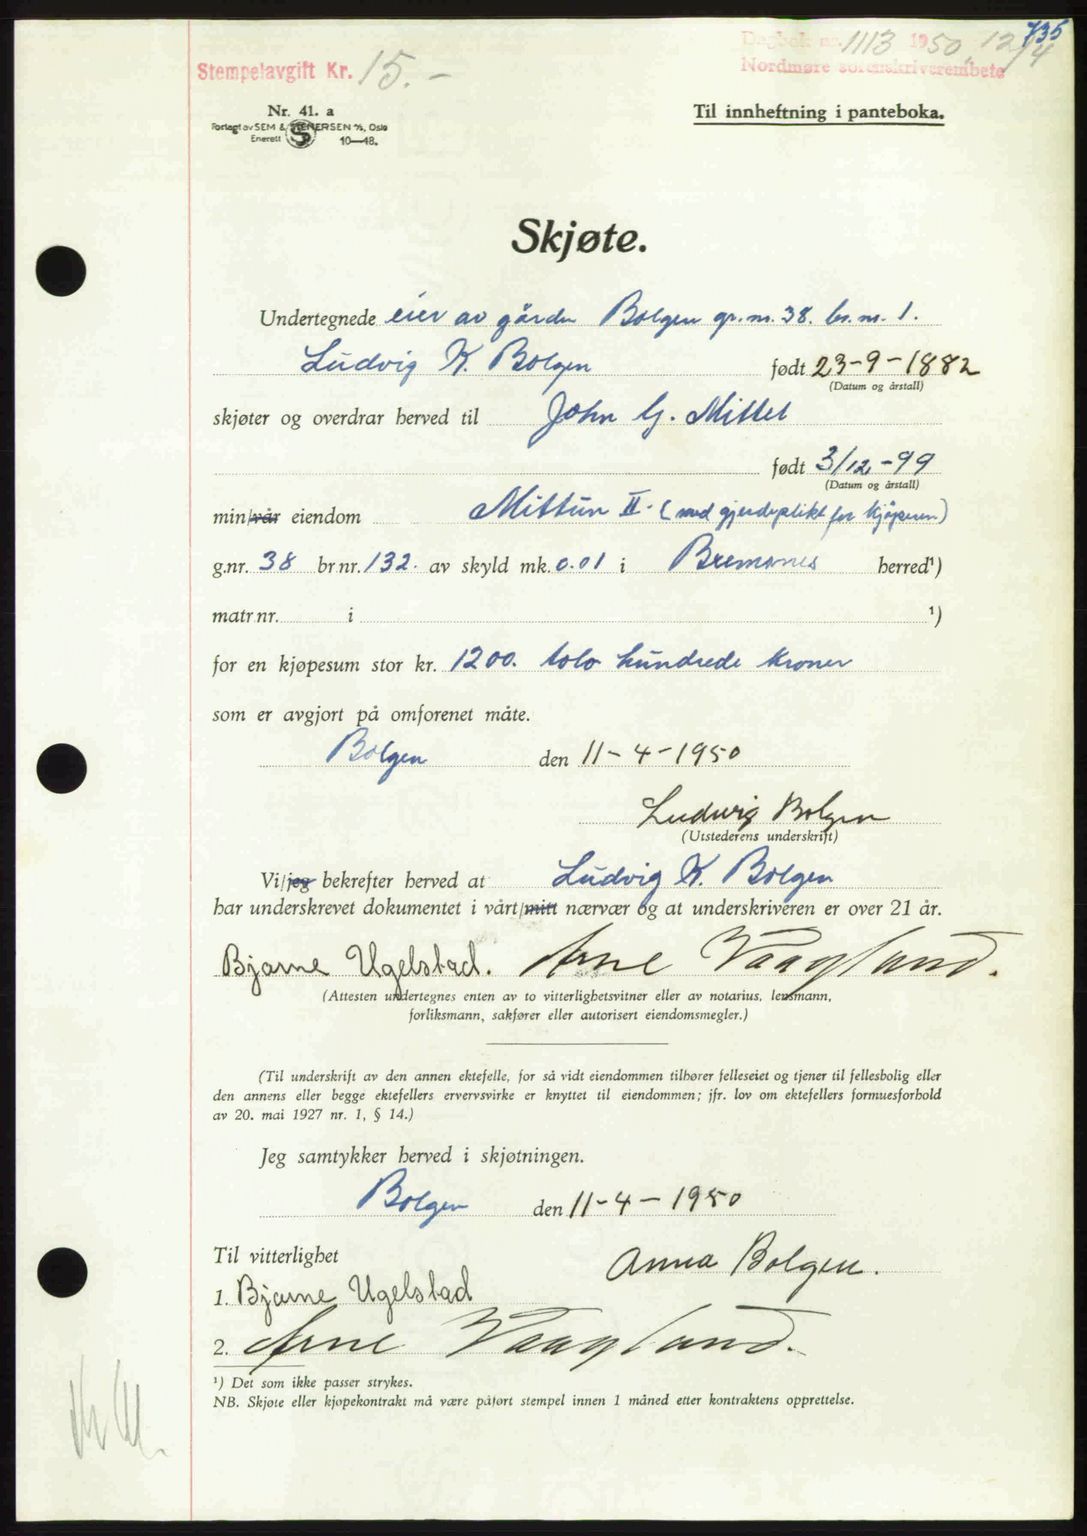 735
Dagbok nr. 1113 1950 12/4
Stempelavgift Kr. 15.-
Nordmøre sorenskriverembete
Nr. 41. a
Forlagt av SEM & STENERSEN A/S, Oslo
Enerett 10—48.
Til innheftning i panteboka.
Skjøte.
Undertegnede eier av gården Bolgen gr. nr. 38. br. nr. 1.
Ludvig K. Bolgen født 23-9-1882
(Datum og årstall)
skjøter og overdrar herved til John G. Mittet
født 3/12-99
(Datum og årstall)
min/vår eiendom Mittun II. (med gjerdeplikt for kjøperen)
g.nr. 38 br.nr. 132. av skyld mk. 0.01 i Bremsnes herred¹)
matr.nr. i ¹)
for en kjøpesum stor kr. 1200. tolv hundrede kroner
som er avgjort på omforenet måte.
Bolgen den 11-4-1950
Ludvig Bolgen
(Utstederens underskrift)
Vi/jeg bekrefter herved at Ludvig K. Bolgen
har underskrevet dokumentet i vårt/mitt nærvær og at underskriveren er over 21 år.
Bjarne Ugelstad. Arne Vaagland.
(Attesten undertegnes enten av to vitterlighetsvitner eller av notarius, lensmann,
forliksmann, sakfører eller autorisert eiendomsmegler.)
(Til underskrift av den annen ektefelle, for så vidt eiendommen tilhører felleseiet og tjener til fellesbolig eller
den annens eller begge ektefellers ervervsvirke er knyttet til eiendommen; jfr. lov om ektefellers formuesforhold
av 20. mai 1927 nr. 1, § 14.)
Jeg samtykker herved i skjøtningen.
Bolgen den 11-4-1950
Til vitterlighet
Anna Bolgen.
1. Bjarne Ugelstad
2. Arne Vaagland.
¹) Det som ikke passer strykes.
NB. Skjøte eller kjøpekontrakt må være påført stempel innen 1 måned etter kontraktens opprettelse.